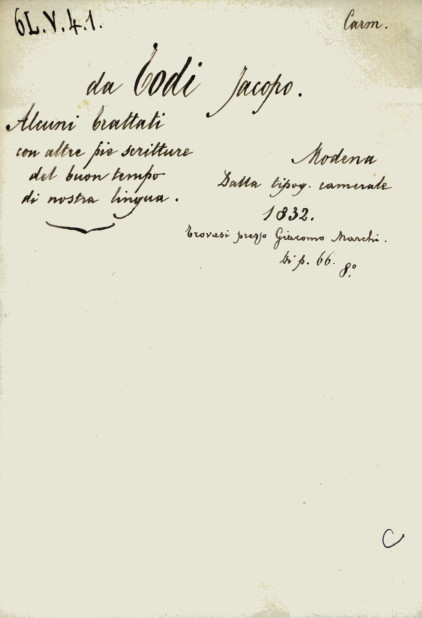 6L.V.4.1.
Carm.
da Todi Jacopo.
Alcuni trattati
con altre pie scritture
del buon tempo
di nostra lingua.
Modena
Dalla tipog. camerale
1832.
trovasi presso Giacomo Marchi.
di p. 66. 8.°
C